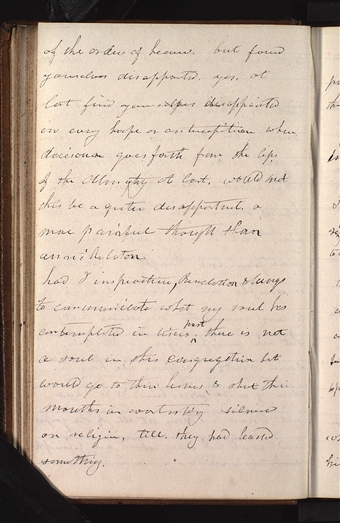 of the order of heaven. but found
yourselves disappointed. yes. at
last find yourselves disappointed
in every hope or anticipation when
decision goes forth from the lips
of the Almighty at last. would not
this be a greater disappointment, a
more painful thought than
annihilation.
had I inspiration, Revelation & lungs
to communicate what my soul has
contemplated in times past, there is not
a soul in this congregation but
would go to their homes, & shut their
mouths in everlasting silence
on religion, till they had learned
something.